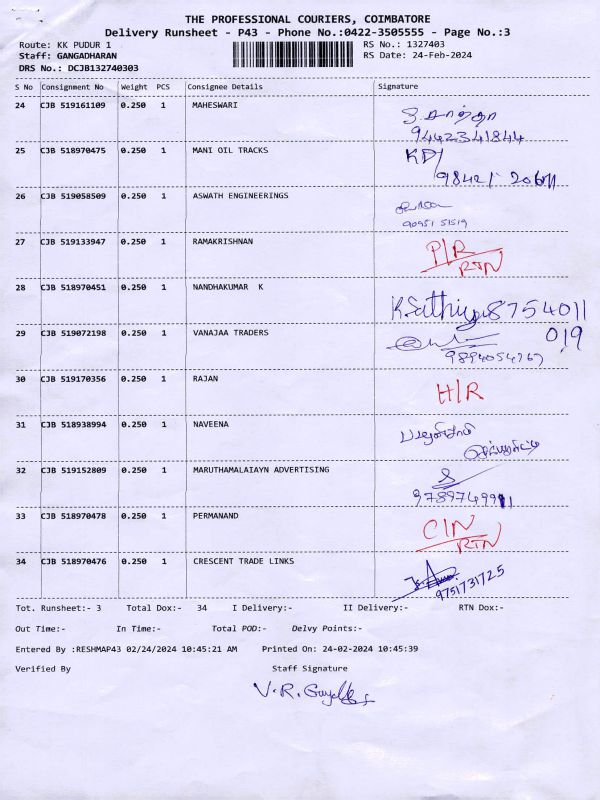 THE PROFESSIONAL COURIERS, COIMBATORE
Delivery Runsheet - P43 - Phone No.:0422-3505555 - Page No.:3
Route: KK PUDUR 1 RS No.: 1327403
Staff: GANGADHARAN RS Date: 24-Feb-2024
DRS No.: DCJB132740303
S No Consignment No Weight PCS Consignee Details Signature
24 CJB 519161109 0.250 1 MAHESWARI
9442341844
25 CJB 518970475 0.250 1 MANI OIL TRACKS
26 CJB 519058509 0.250 1 ASWATH ENGINEERINGS
90951 51519
27 CJB 519133947 0.250 1 RAMAKRISHNAN P/R
RTN
28 CJB 518970451 0.250 1 NANDHAKUMAR K
K Sathiya 8754011
019
29 CJB 519072198 0.250 1 VANAJAA TRADERS
9894054767
30 CJB 519170356 0.250 1 RAJAN H/R
31 CJB 518938994 0.250 1 NAVEENA
32 CJB 519152809 0.250 1 MARUTHAMALAIAYN ADVERTISING
9789749911
33 CJB 518970478 0.250 1 PERMANAND C/N
RTN
34 CJB 518970476 0.250 1 CRESCENT TRADE LINKS
9751731725
Tot. Runsheet:- 3 Total Dox:- 34 I Delivery:- II Delivery:- RTN Dox:-
Out Time:- In Time:- Total POD:- Delvy Points:-
Entered By :RESHMAP43 02/24/2024 10:45:21 AM Printed On: 24-02-2024 10:45:39
Verified By Staff Signature